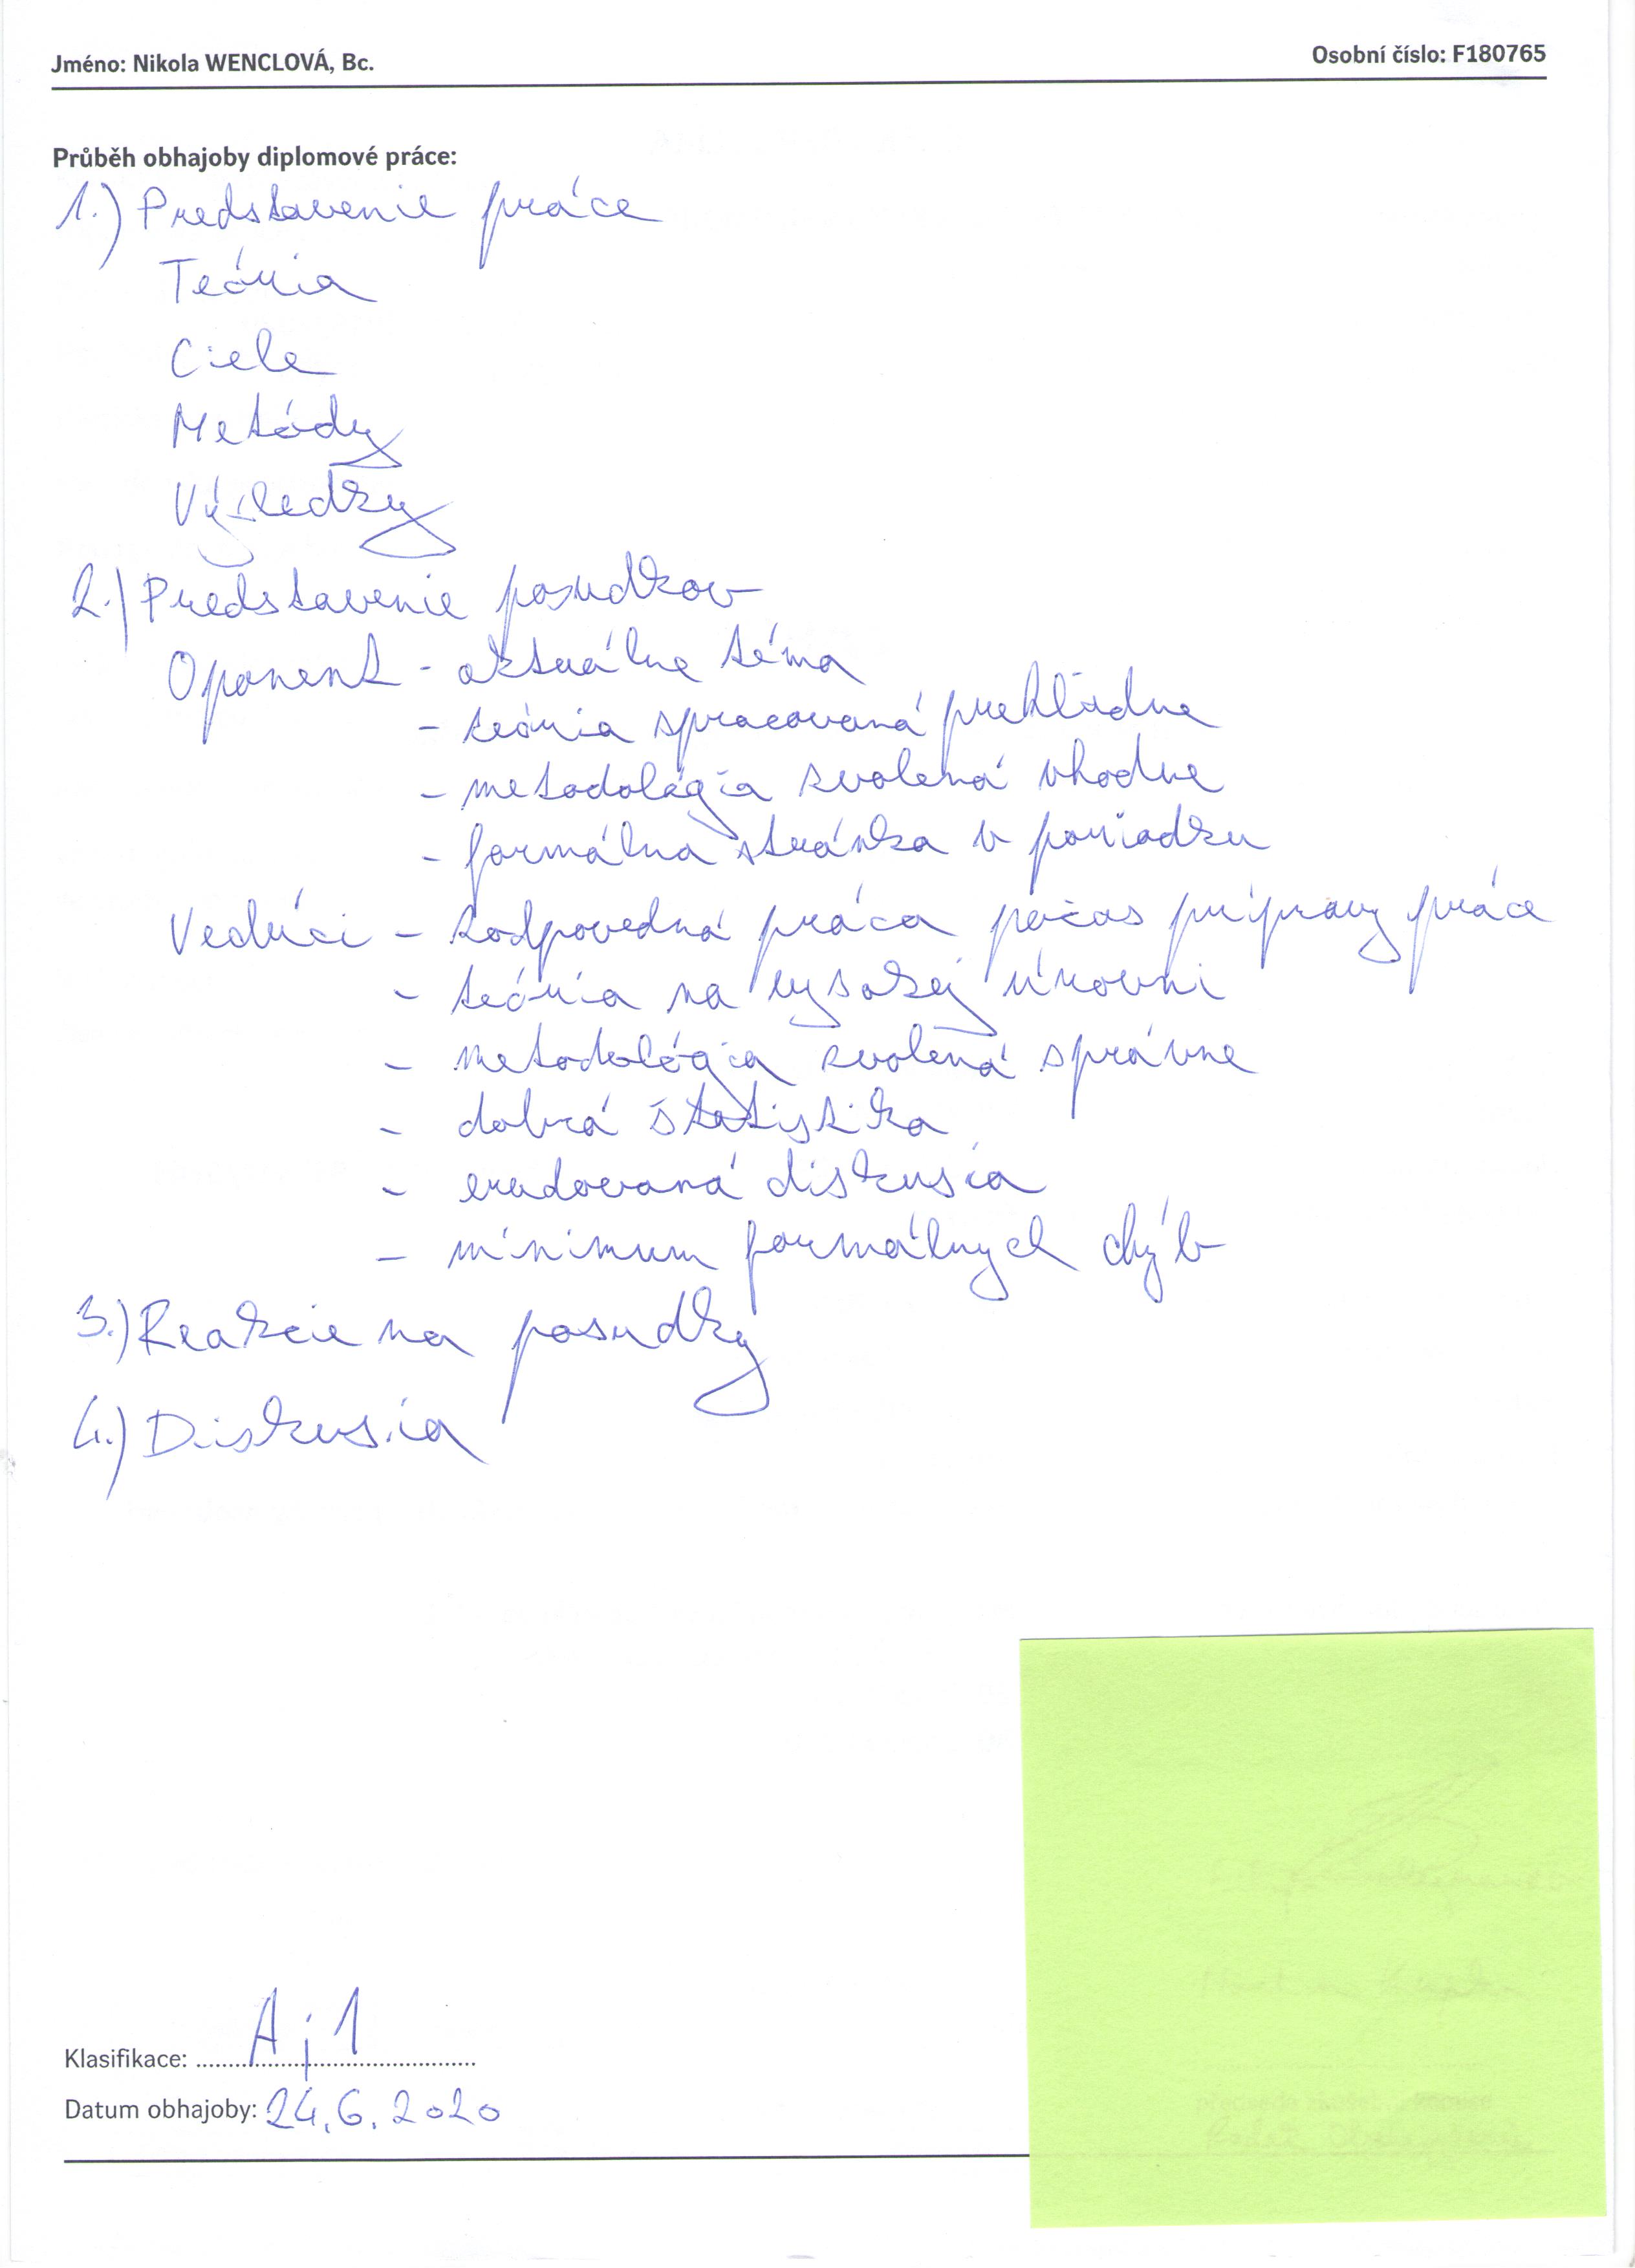 Jméno: Nikola WENCLOVÁ, Bc. Osobní číslo: F180765
Průběh obhajoby diplomové práce:
1.) Predstavenie práce
Teória
Ciele
Metódy
Výsledky
2.) Predstavenie posudkov
Oponent - aktuálne téma
- teória spracovaná prehľadne
- metodológia zvolená vhodne
- formálna stránka v poriadku
Vedúci - zodpovedná práca počas prípravy práce
- teória na vysokej úrovni
- metodológia zvolená správne
- dobrá štatistika
- erudovaná diskusia
- minimum formálnych chýb
3.) Reakcie na posudky
4.) Diskusia
Klasifikace: A;1
Datum obhajoby: 24.6.2020